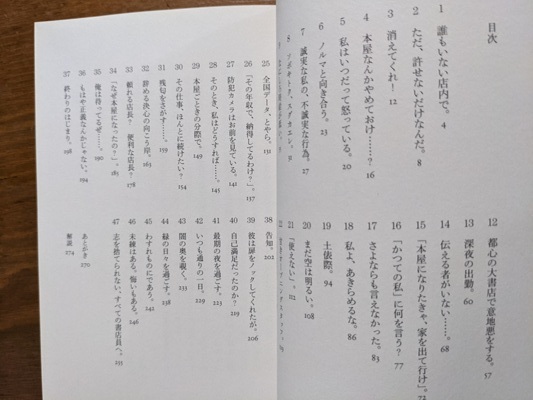 目次
1 誰もいない店内で。 4
2 ただ、許せないだけなんだ。 8
3 消えてくれ! 12
4 本屋なんかやめておけ……? 16
5 私はいつだって怒っている。 20
6 ノルマと向き合う。 23
7 誠実な私の、不誠実な行為。 27
12 都心の大書店で意地悪をする。 57
13 深夜の出勤。 60
14 伝える者がいない……。 68
15 「本屋になりたきゃ、家を出て行け」。 72
16 「かつての私」に何を言う? 77
17 さよならも言えなかった。 83
18 私よ、あきらめるな。 86
19 土俵際。 94
20 まだ空は明るい。 108
21 「使えない」。 112
25 全国データ、とやら。 131
26 「その年収で、納得してるわけ?」。 137
27 防犯カメラはお前を見ている。 141
28 そのとき、私はどうすれば……。 145
29 本屋ごときの分際で。 149
30 その仕事、ほんとに続けたい? 154
31 残句をさがす……。 159
32 辞める決心の向こう岸。 163
33 頼れる店長? 便利な店長? 178
34 「なぜ本屋になったの?」。 185
35 俺は待ってるぜ……。 190
36 もはや正義なんかじゃない。 194
37 終わりのはじまり。 198
38 告知。 201
39 彼は扉をノックしてくれたが。 206
40 自己満足だったのか? 219
41 最期の夜を過ごす。 223
42 いつも通りの一日。 229
43 闇の奥を覗く。 233
44 緑の日々を過ごす。 238
45 わすれものにであう。 242
46 未練はある。悔いもある。 246
47 志を捨てられない、すべての書店員へ。 255
あとがき 270
解説 274